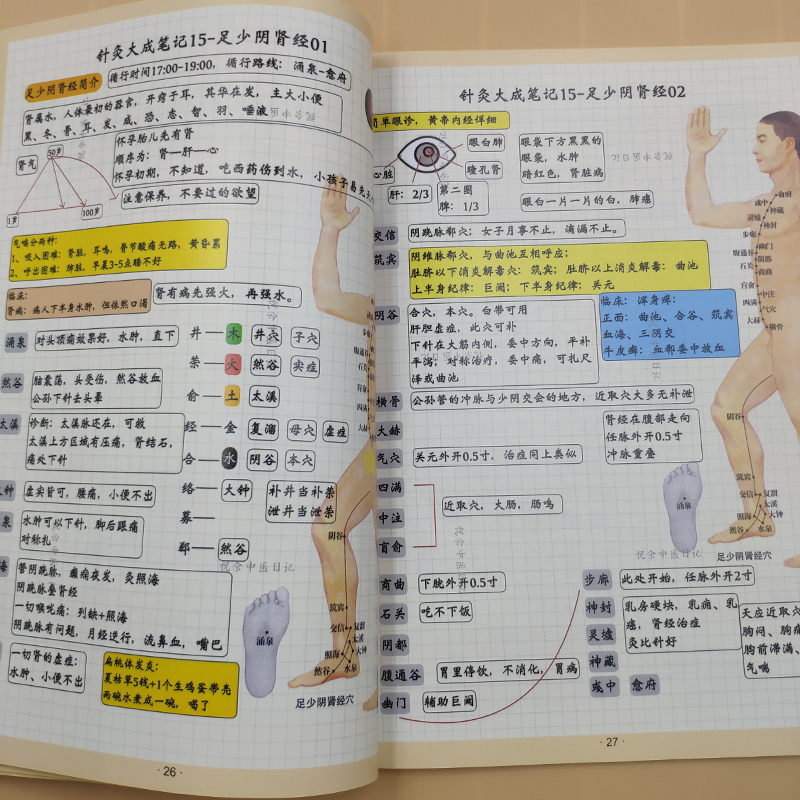 针灸大成笔记15-足少阴肾经01
足少阴肾经简介
循行时间17:00-19:00, 循行路线: 涌泉-俞府
肾属水, 人体最初的器官, 开窍于耳, 其华在发, 主大小便
黑、冬、骨、耳、发、咸、恐、志、智、羽、唾液
肾气
50岁
1岁
100岁
怀孕胎儿先有肾
顺序为: 肾—肝—心
怀孕初期, 不知道, 吃西药伤到水, 小孩子易先天
注意保养, 不要过的欲望
气喘分两种:
1、吸入困难: 肾脏, 耳鸣, 骨节酸痛无路, 黄昏累
2、呼出困难: 肺脏, 早晨3-5点睡不好
临床:
肾病: 病人下半身水肿, 但依然口渴
肾有病先强火, 再强水。
涌泉
对头顶痛效果好, 水肿, 直下
然谷
胎囊荡, 头受伤, 然谷放血
公孙下针去头晕
太溪
诊断: 太溪脉还在, 可救
太溪上方区域有压痛, 肾结石,
痛处下针
大钟
虚实皆可, 腰痛, 小便不出
泉
水肿可以下针, 脚后跟痛
对称扎
海
管阴跷脉, 癫痫夜发, 灸照海
阴跷脉叠肾经
一切喉咙痛: 列缺+照海
阴跷脉有问题, 月经逆行, 流鼻血, 嘴巴
一切肾的虚症:
水肿、小便不出
扁桃体发炎:
夏枯草5钱+1个生鸡蛋带壳
两碗水煮成一碗, 喝了
井—木 井穴 子穴
荥—火 然谷 实症
俞—土 太溪
经—金 复溜 母穴 虚症
合—水 阴谷 本穴
络—大钟
募—
郄—然谷
补井当补荥
泄井当泄荥
悦余中医日记
阴谷
筑宾
交信
复溜
太溪
照海
大钟
然谷
水泉
涌泉
足少阴肾经穴
· 26 ·
针灸大成笔记15-足少阴肾经02
简单眼诊, 黄帝内经详细
心脏
眼白肺
瞳孔肾
肝: 2/3
第二圈
脾: 1/3
眼袋下方黑黑的
眼袋, 水肿
暗红色, 肾脏病
眼白一片一片的白, 肺癌
交信
阴跷脉郄穴; 女子月事不止, 滴漏不止。
筑宾
阴维脉郄穴, 与曲池互相呼应;
肚脐以下消炎解毒穴: 筑宾; 肚脐以上消炎解毒: 曲池
上半身纪律: 巨阙; 下半身纪律: 关元
阴谷
合穴, 本穴。白带可用
肝胆虚症, 此穴可补
下针在大筋内侧, 委中方向, 平补
平泻; 对称治疗, 委中痛, 可扎尺
泽或曲池
临床: 浑身痒:
正面: 曲池、合谷、筑宾
血海、三阴交
牛皮癣: 血郄委中放血
横骨
公孙管的冲脉与少阴交会的地方, 近取穴大多无补泄
大赫
气穴
关元外开0.5寸, 治症同上类似
肾经在腹部走向
任脉外开0.5寸
冲脉重叠
四满
中注
肓俞
近取穴, 大肠, 肠鸣
商曲
下脘外开0.5寸
石关
吃不下饭
阴都
腹通谷
胃里停饮, 不消化, 胃病
幽门
辅助巨阙
步廊
此处开始, 任脉外开2寸
神封
灵墟
乳房硬块, 乳痈、乳
癌, 肾经治症
灸比针好
神藏
彧中
俞府
天应近取穴
胸闷、胸痛
胸前滞满、
气喘
俞府
彧中
神藏
灵墟
神封
步廊
幽门
腹通谷
阴都
石关
商曲
肓俞
中注
四满
气穴
大赫
横骨
阴谷
筑宾
交信
复溜
太溪
照海
大钟
然谷
水泉
涌泉
足少阴肾经穴
悦余中医日记
· 27 ·